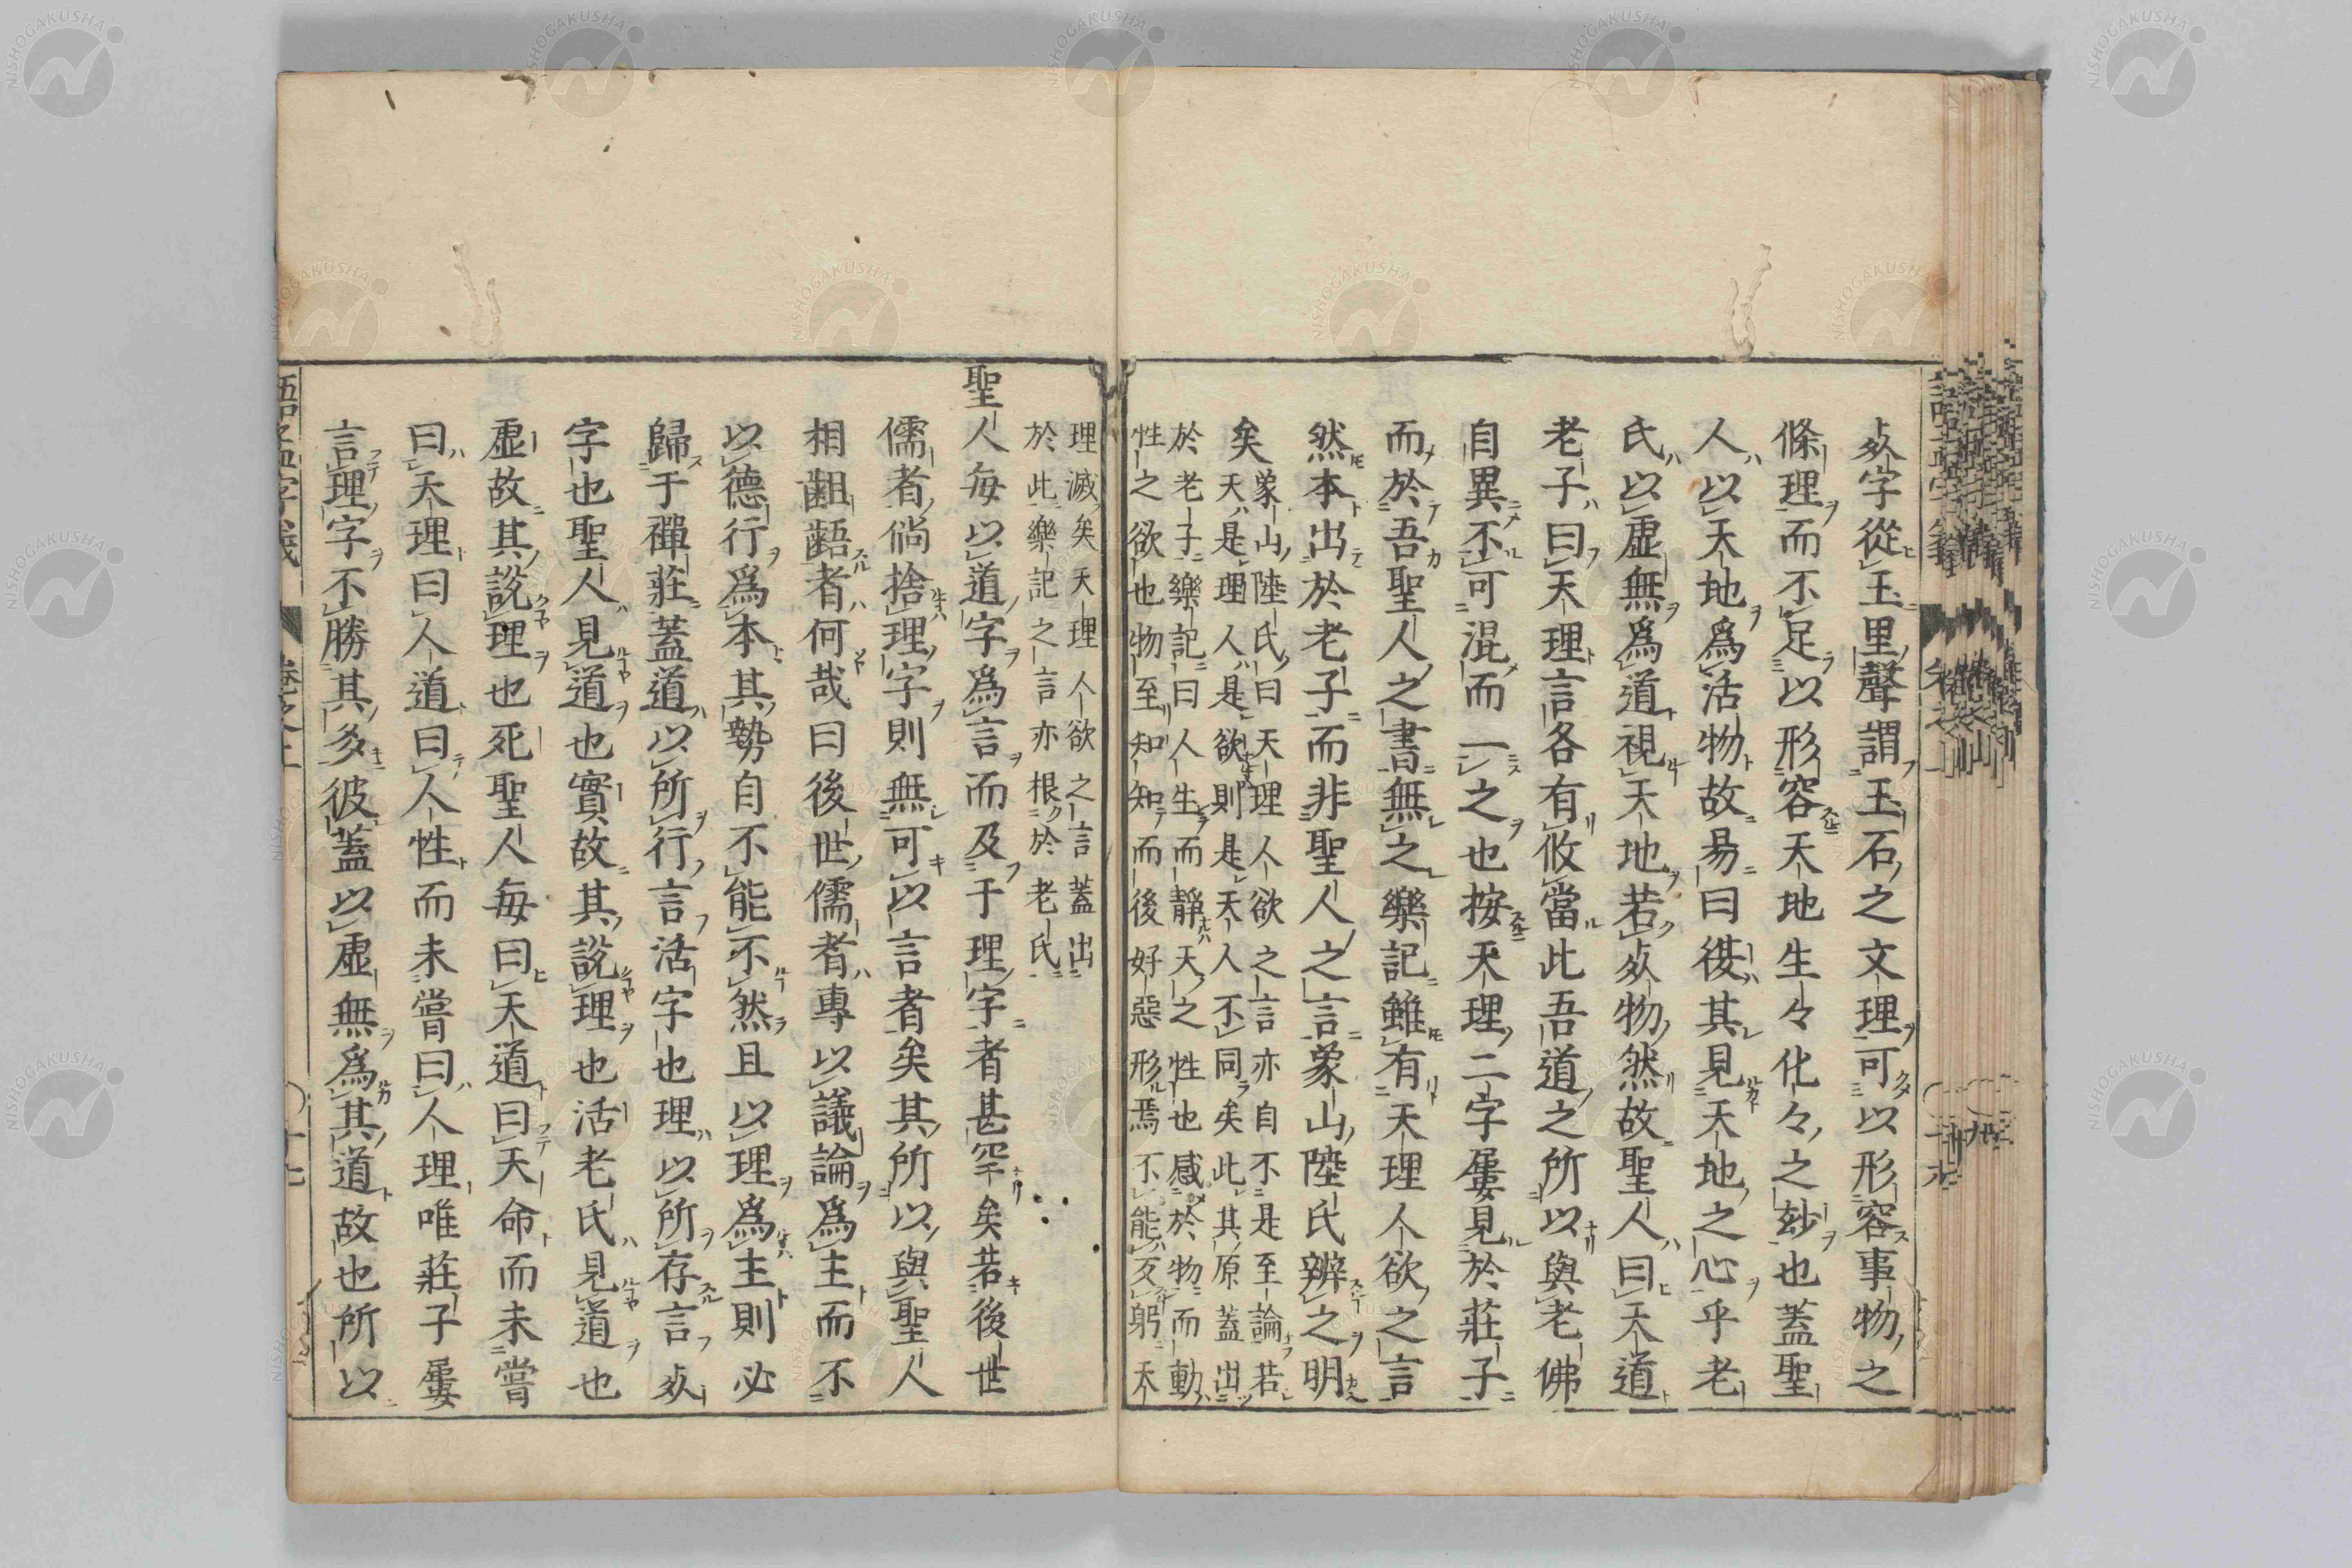 死字從玉里聲謂玉石之文理可以形容事物之
條理而不足以形容天地生々化々之玅也蓋聖
人以天地爲活物故易曰復其見天地之心乎老
氏以虛無爲道視天地若死物然故聖人曰天道
老子曰天理言各有攸當此吾道之所以與老佛
自異不可混而一之也按天理二字屢見於莊子
而於吾聖人之書無之樂記雖有天理人欲之言
然本出於老子而非聖人之言象山陸氏辨之明
矣
象山陸氏曰天理人欲之言亦自不是至論若
天是理人是欲則是天人不同矣此其原蓋出
於老子樂記曰人生而靜天之性也感於物而動
性之欲也物至知知而後好惡形焉不能反躬天
理滅矣天理人欲之言蓋出
於此樂記之言亦根於老氏
聖人每以道字爲言而及于理字者甚罕矣若後世
儒者倘捨理字則無可以言者矣其所以與聖人
相齟齬者何哉曰後世儒者專以議論爲主而不
以德行爲本其勢自不能不然且以理爲主則必
歸于禪莊蓋道以所行言活字也理以所存言死
字也聖人見道也實故其說理也活老氏見道也
虛故其說理也死聖人每曰天道曰天命而未嘗
曰天理曰人道曰人性而未嘗曰人理唯莊子屢
言理字不勝其多彼蓋以虛無爲其道故也所以
語孟字義
卷之上
十七